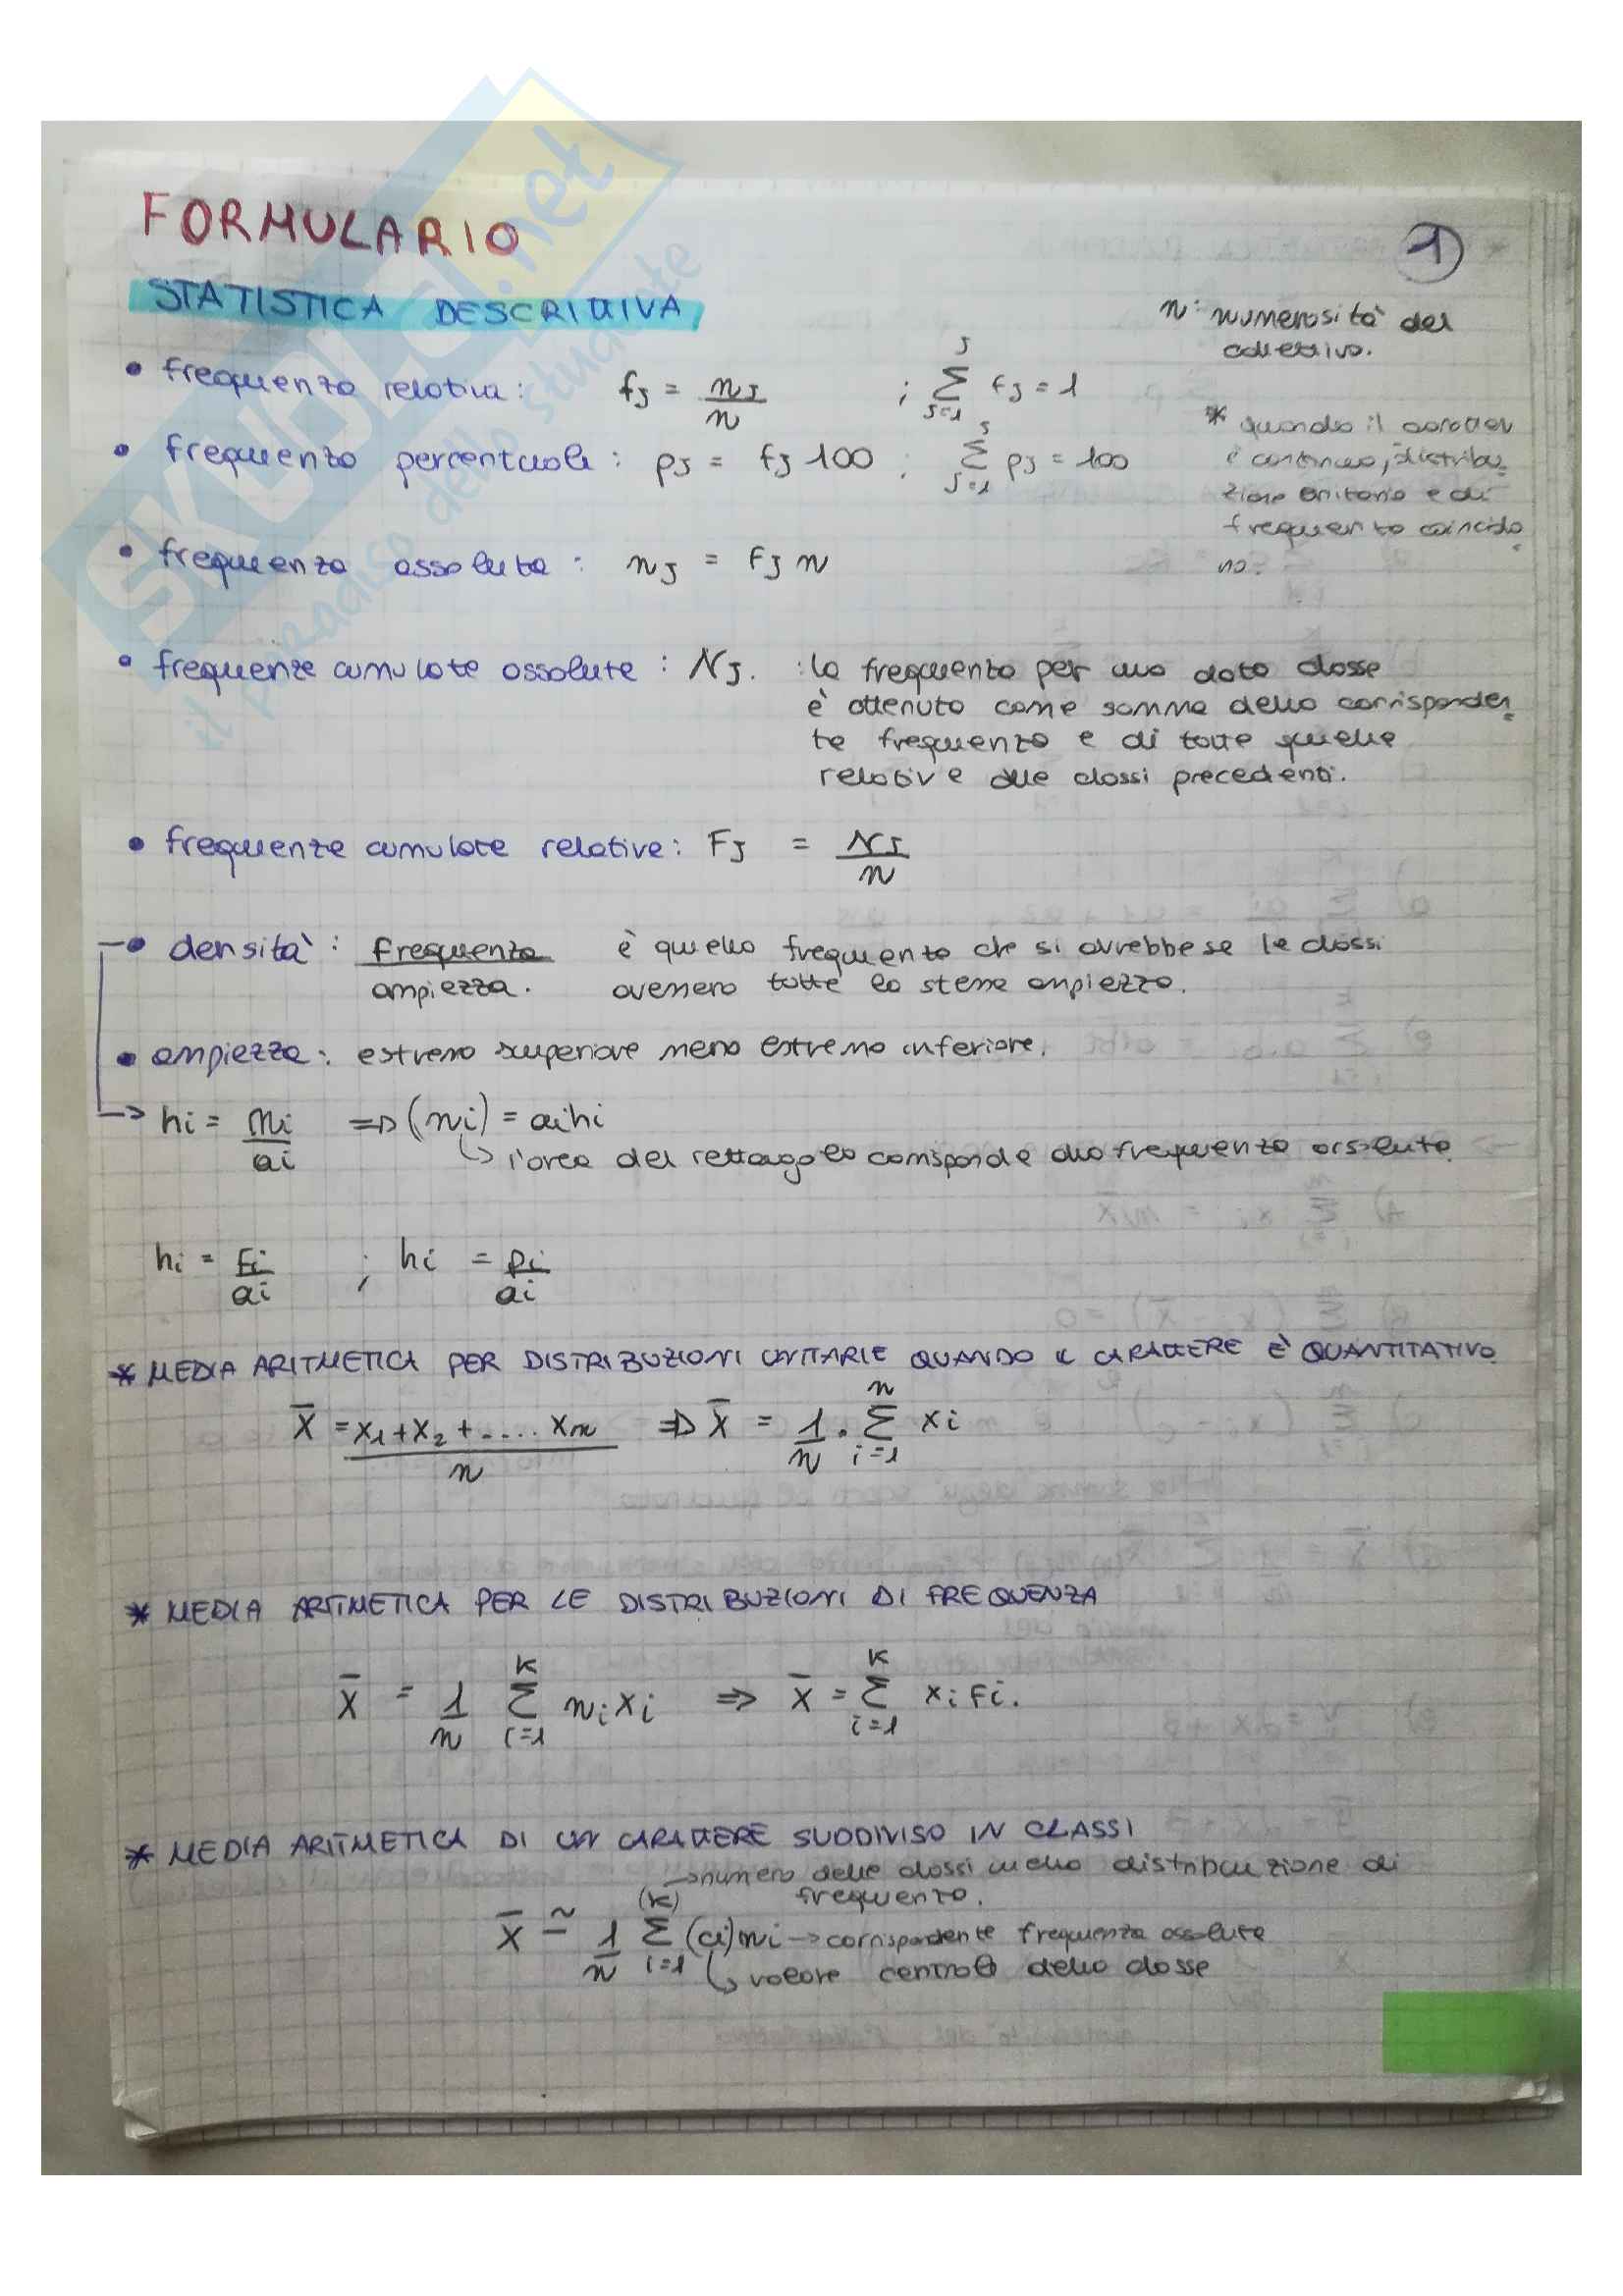 FORMULARIO
1
STATISTICA DESCRITTIVA
n: numerosità del
collettivo.
• frequenza relativa: fJ = nJ/n ; ∑(J=1→J) fJ = 1
* quando il caratter
è continuo, distribu-
zione unitaria e di
frequenza coincido
no.
• frequenza percentuale: pJ = fJ 100 ; ∑(J=1→J) pJ = 100
• frequenza assoluta: nJ = fJ n
• frequenze cumulate assolute: NJ. : la frequenza per una data classe
è ottenuta come somma della corrisponden-
te frequenza e di tutte quelle
relative alle classi precedenti.
• frequenze cumulate relative: FJ = NJ/n
• densità: frequenza/ampiezza. è quella frequenza che si avrebbe se le classi
avessero tutte la stessa ampiezza.
• ampiezza: estremo superiore meno estremo inferiore.
→ hi = ni/ai ⇒ (ni) = aihi
↳ l'area del rettangolo corrisponde alla frequenza assoluta
hi = fi/ai ; hi = pi/ai
* MEDIA ARITMETICA PER DISTRIBUZIONI UNITARIE QUANDO IL CARATTERE È QUANTITATIVO
x̄ = (x1+x2+.... xn)/n ⇒ x̄ = 1/n · ∑(i=1→n) xi
* MEDIA ARITMETICA PER LE DISTRIBUZIONI DI FREQUENZA
x̄ = 1/n ∑(i=1→K) nixi ⇒ x̄ = ∑(i=1→K) xi fi.
* MEDIA ARITMETICA DI UN CARATTERE SUDDIVISO IN CLASSI
→ numero delle classi nella distribuzione di
frequenza.
x̄ ≃ 1/n ∑(i=1→(K)) (ci)ni → corrispondente frequenza assoluta
↳ valore centrale della classe
SKUOLA.net
il paradiso dello studente